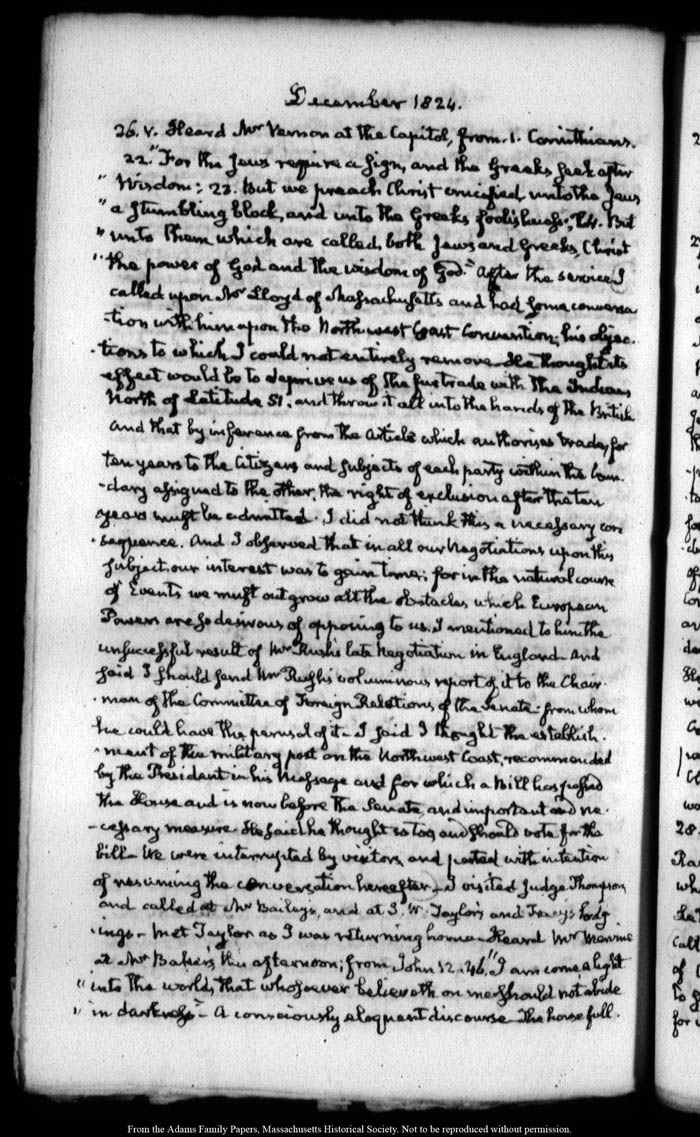 December 1824.
26. V. Heard Mr Vernon at the Capitol, from. 1. Corinthians.
22. "For the Jews require a sign, and the Greeks seek after
" Wisdom: 23. But we preach Christ crucified, unto the Jews
" a stumbling block, and unto the Greeks foolishness; 24. But
" unto them which are called, both Jews and Greeks, Christ
" the power of God and the wisdom of God." After the service I
called upon Mr Lloyd of Massachusetts and had some conversa
-tion with him upon the North west Coast Convention; his objec-
-tions to which I could not entirely remove. He thought its
effect would be to deprive us of the fur trade with the Indians
North of Latitude 51. and throw it all into the hands of the British
And that by inference from the Article which authorises trade, for
ten years to the Citizens and subjects of each party within the boun-
-dary assigned to the other, the right of exclusion after the ten
years must be admitted. I did not think this a necessary con
-sequence. And I observed that in all our Negotiations upon this
subject our interest was to gain time; for in the natural course
of Events we must outgrow all the obstacles which European
Powers are so desirous of opposing to us. I mentioned to him the
unsuccessful result of Mr Rush's late Negotiation in England. And
said I should send Mr Rush's voluminous report of it to the Chair-
-man of the Committee of Foreign Relations, of the Senate. from whom
he could have the perusal of it. I said I thought the establish-
-ment of the military post on the Northwest Coast, recommended
by the President in his Message and for which a Bill has passed
the House and is now before the Senate, and important and ne-
-cessary measure. He said he thought so too, and should vote for the
bill. We were interrupted by visitors, and parted with intention
of resuming the conversation hereafter. I visited Judge Thompson,
and called at Mr Bailey's, and at J. W. Taylor's and Tracy's lodg
-ings. Met Taylor as I was returning home. Heard Mr
at Mr Baker's, this afternoon; from, John 12. 46. "I am come a light
" into the world, that whosoever believeth on me should not abide
" in darkness". A consciously eloquent discourse. The house full.
2
28.
From the Adams Family Papers, Massachusetts Historical Society. Not to be reproduced without permission.